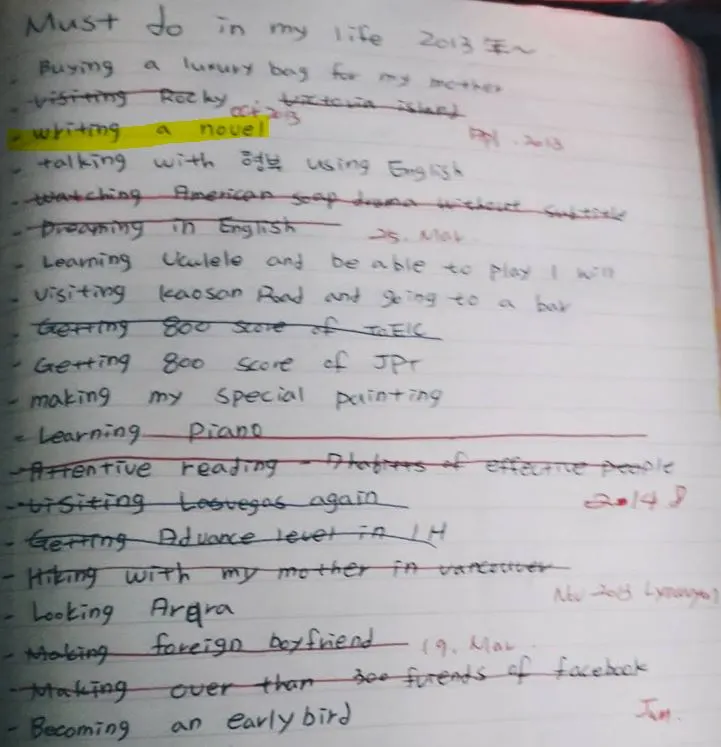 Must do in my life 2013 年~
- Buying a luxury bag for my mother
- visiting Rocky victoria island
- writing a novel Oct 2013
- talking with 형부 using English
- watching American soap drama without subtitle
- Dreaming in English 25. Mar.
- Learning Ukulele and be able to play 1
- visiting kaosan Road and going to a bar
- Getting 800 score of ToEIC
- Getting 800 score of JPT
- making my special painting
- Learning piano
- Attentive reading - of effective people
- visiting Lasvegas again 2014
- Getting Advance level in LH
- Hiking with my mother in vancouver
- Looking Nov 2013
- Making foreign boyfriend 19. Mar.
- Making over than 300 of facebook
- Becoming an early bird